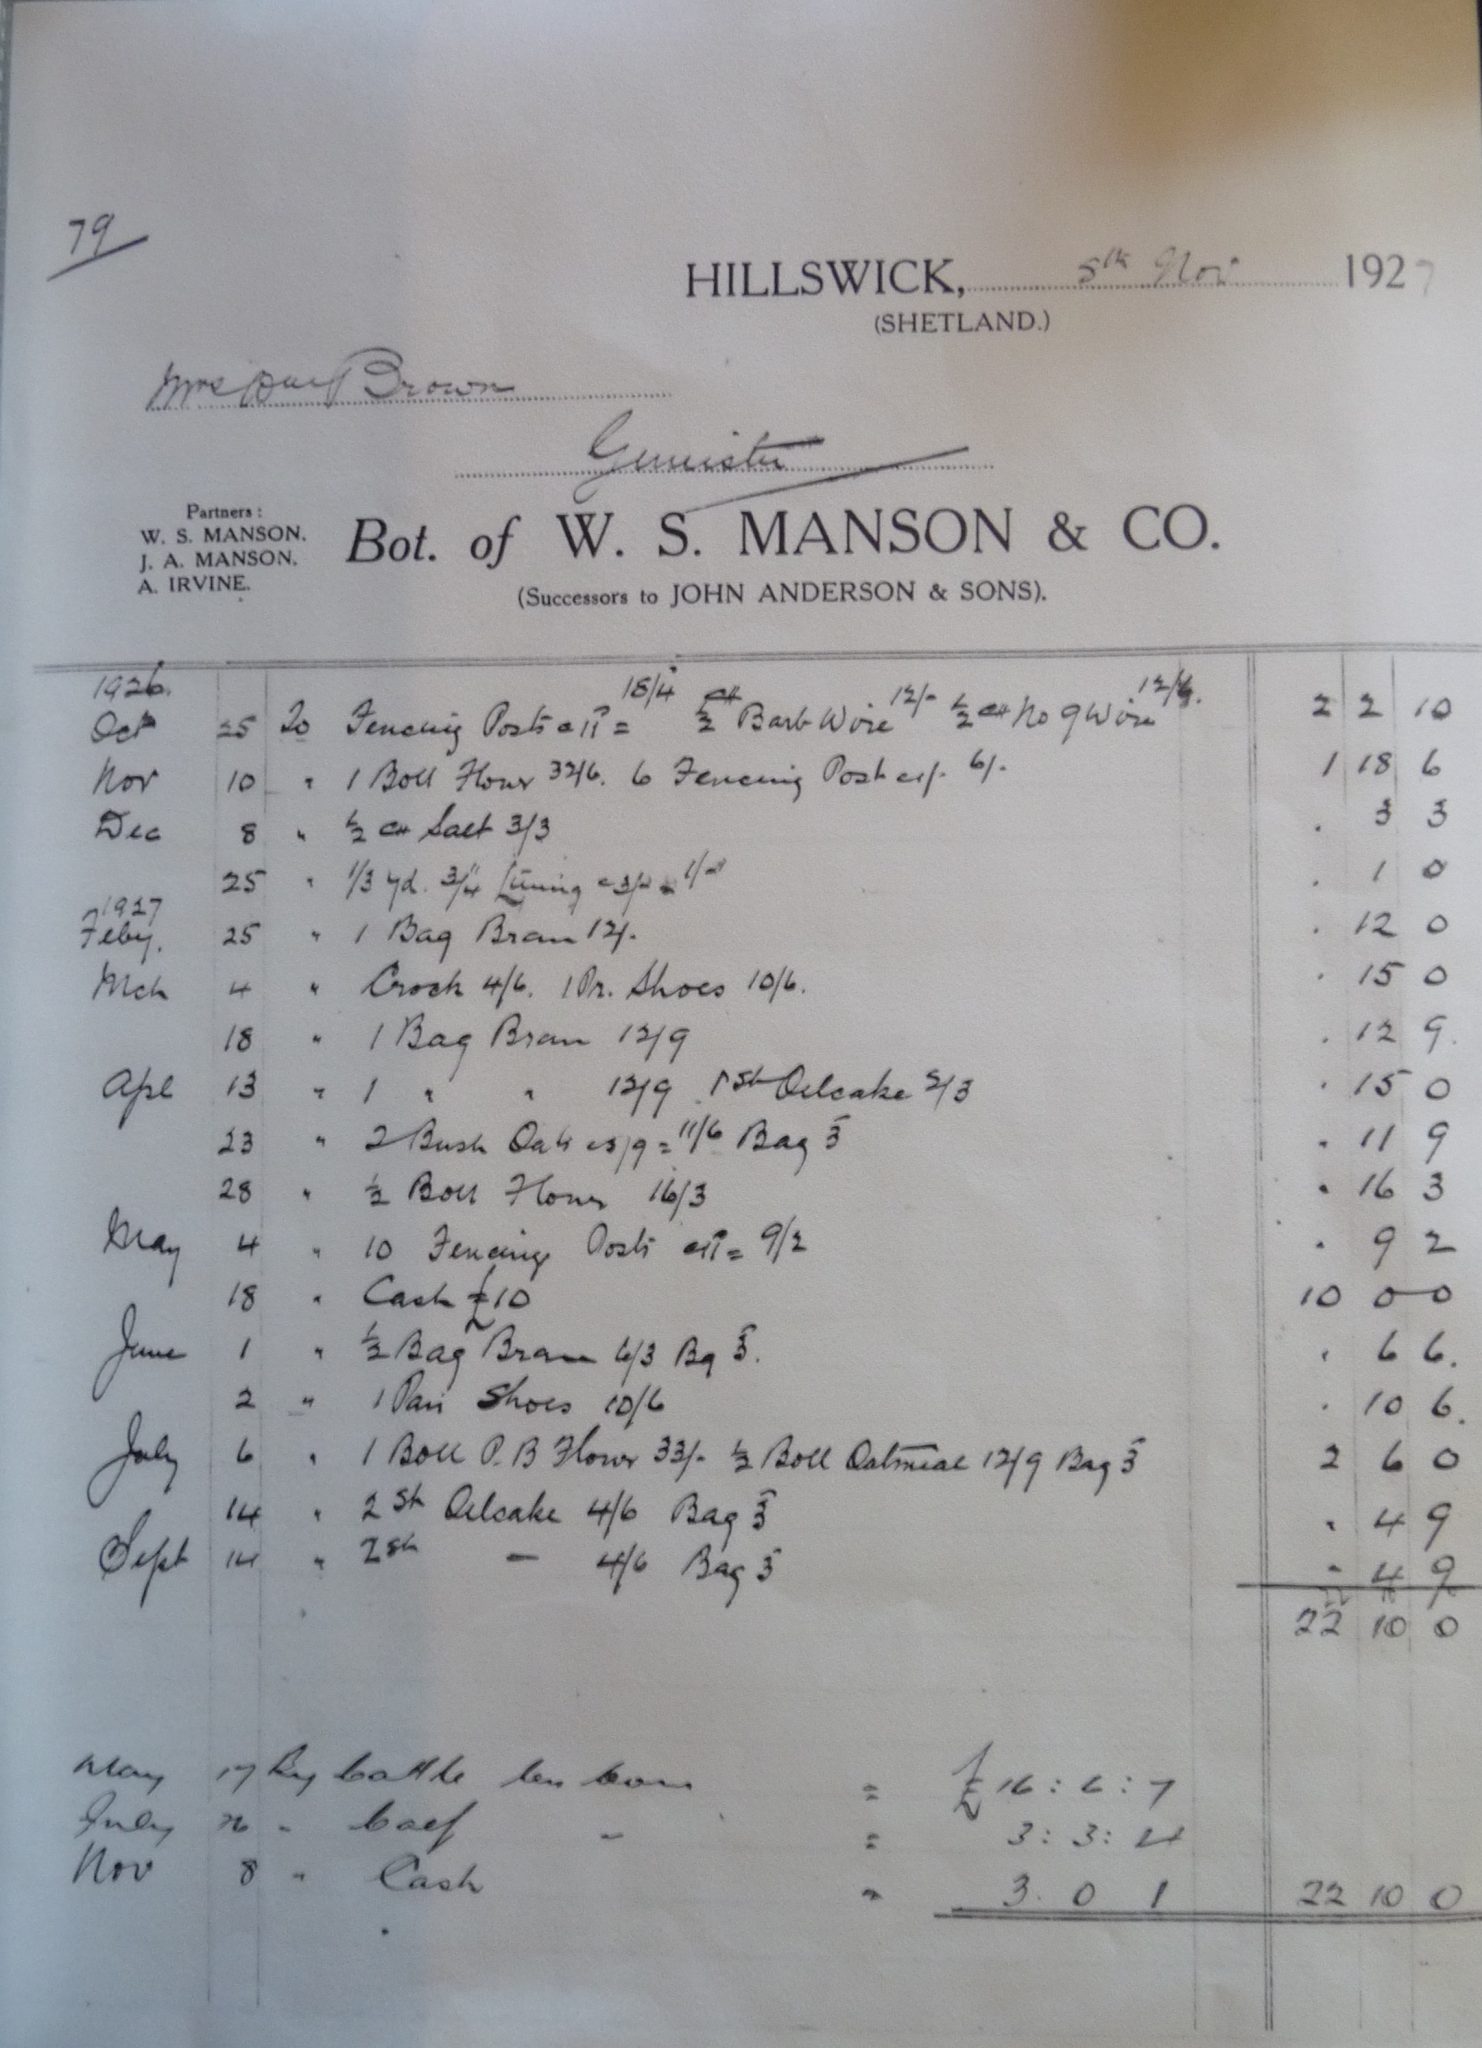 79
HILLSWICK, 8th Nov 1927
(SHETLAND.)
Mrs Brown
Gunnister
Partners:
W. S. MANSON.
J. A. MANSON.
A. IRVINE.
Bot. of W. S. MANSON & CO.
(Successors to JOHN ANDERSON & SONS).
1926.
Oct 25 To Fencing Posts @ 11d = 18/4 ½ cwt Barb Wire 12/- ½ cwt No 9 Wire 12/6. 2 2 10
Nov 10 " 1 Boll Flour 32/6. 6 Fencing Post @ 1/- 6/- 1 18 6
Dec 8 " ½ cwt Salt 3/3 . 3 3
25 " 1/3 yd. 3/4" Lining @ 3/- = 1/- . 1 0
1927
Feby. 25 " 1 Bag Bran 12/- . 12 0
Mch 4 " Crock 4/6. 1 Pr. Shoes 10/6. . 15 0
18 " 1 Bag Bran 12/9 . 12 9
Apl 13 " 1 " " 12/9 1 St Oilcake 2/3 . 15 0
23 " 2 Bush Oats @ 5/9 = 11/6 Bag 3d . 11 9
28 " ½ Boll Flour 16/3 . 16 3
May 4 " 10 Fencing Posts @ 11d = 9/2 . 9 2
18 " Cash £10 10 0 0
June 1 " ½ Bag Bran 6/3 Bg 3d. . 6 6.
2 " 1 Pair Shoes 10/6 . 10 6.
July 6 " 1 Boll P.B Flour 33/- ½ Boll Oatmeal 12/9 Bag 3d 2 6 0
14 " 2 St Oilcake 4/6 Bag 3d . 4 9
Sept 14 " 2 St — 4/6 Bag 3d . 4 9
22 10 0
May 17 By Cattle = £16 : 6 : 7
July " Calf " = 3 : 3 : 4
Nov 8 " Cash " 3. 0 1 22 10 0